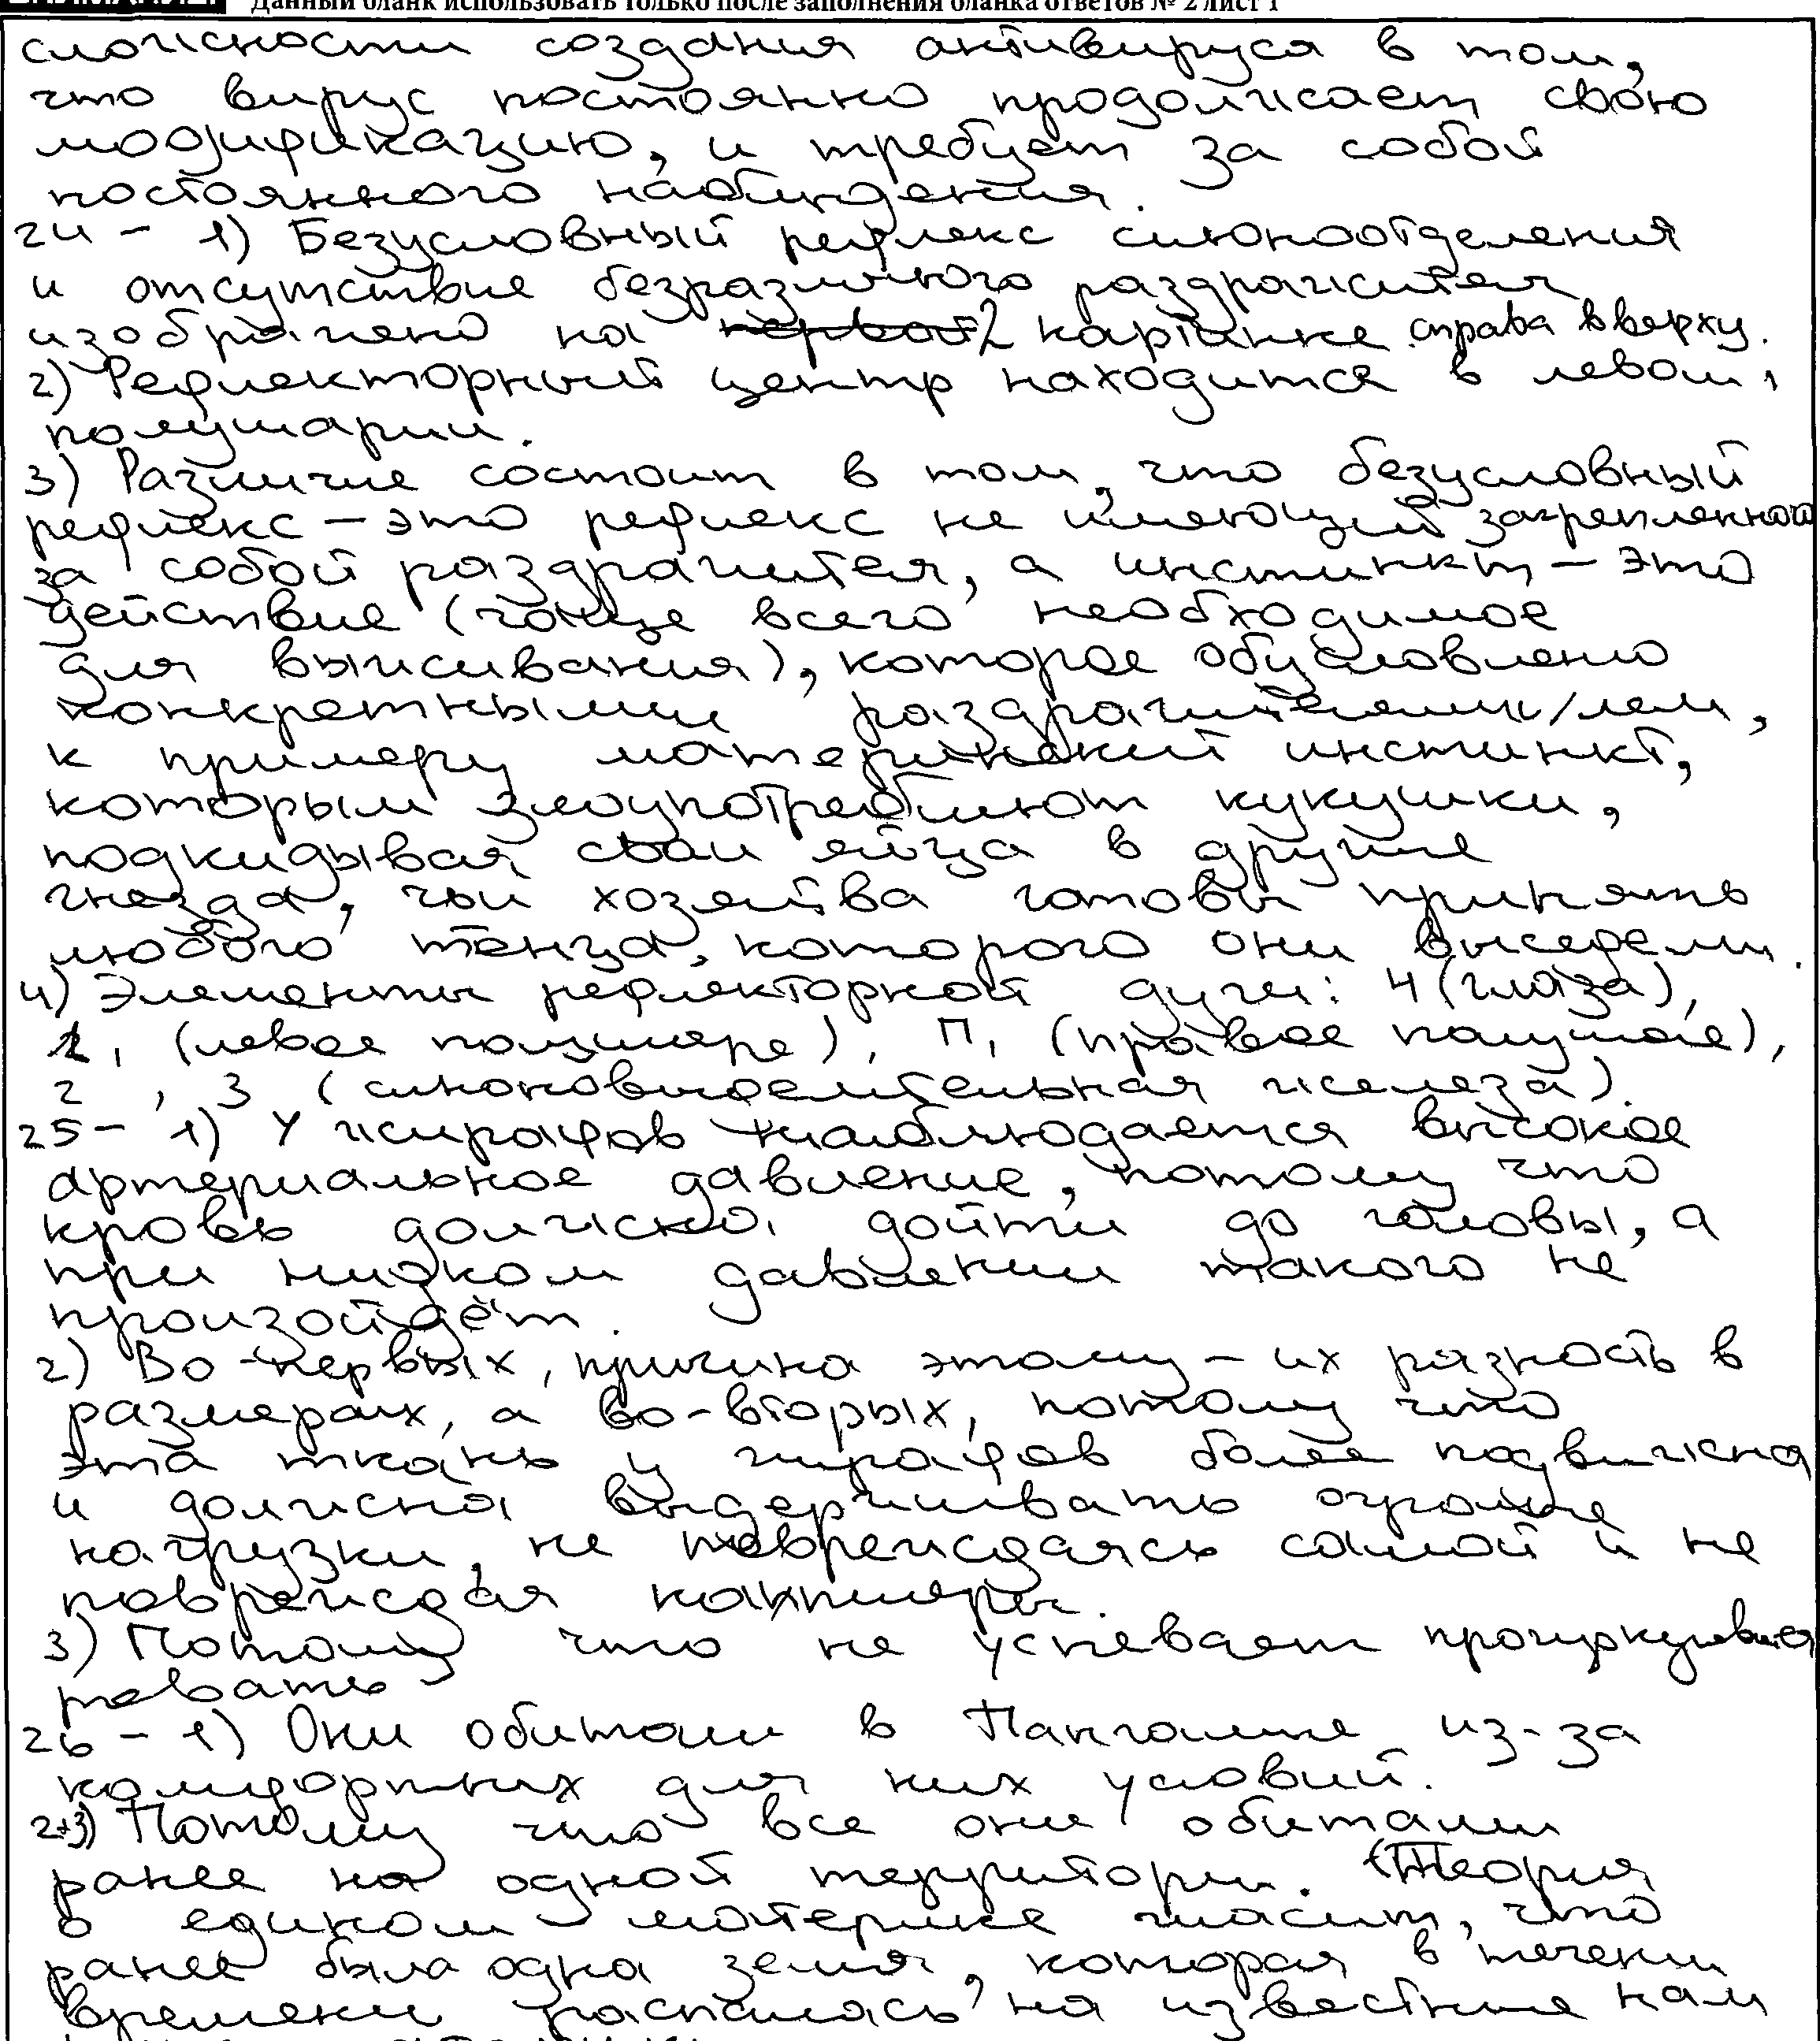 Данный бланк использовать только после заполнения бланка ответов № 2 лист 1
сложности создания антивируса в том,
что вирус постоянно продолжает свою
модификацию, и требует за собой
постоянного наблюдения.
24 - 1) Безусловный рефлекс слюноотделения
и отсутствие безразличного раздражителя
изображено на 2 картинке справа вверху.
2) Рефлекторный центр находится в левом
полушарии.
3) Различие состоит в том, что безусловный
рефлекс – это рефлекс не имеющий закрепленной
за собой раздражителя, а инстинкт – это
действие (чаще всего необходимое
для выживания), которое обусловлено
конкретными раздражителями/лем,
к примеру материнский инстинкт,
которым злоупотребляют кукушки,
подкидывая свои яйца в другие
гнезда, чьи хозяйва готовы принять
любого птенца, которого они высерели.
4) Элементы рефлекторной дуги: Ч (глаза),
1, (левое полушаре), П, (правое полушае),
2, 3 (слюновыделительная железа).
25 - 1) У жирафов наблюдается высокое
артериальное давление, потому что
кровь должна дойти до головы, а
при низком давлении такого не
произойдёт.
2) Во-первых, причина этому – их разность в
размерах, а во-вторых, потому что
эта ткань у жирафов более подвижна
и должна выдерживать огромные
нагрузки, не повреждаясь самой и не
повреждая
3) Потому что не успевает
26 - 1) Они обитали в Пангалие из-за
комфортных для них условий.
2+3) Потому что все они обитали
ранее на одной территории. (Теория
о едином материке гласит, что
ранее была одна земля, которая в течени
времени распалась на известные нам